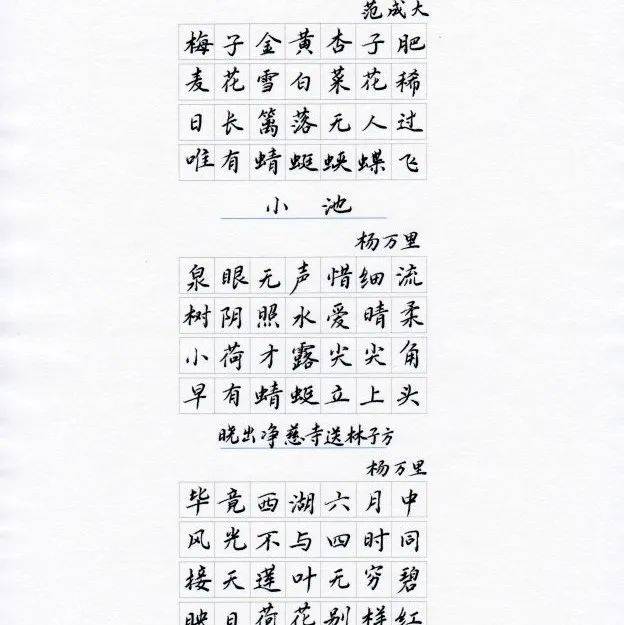 范成大
梅子金黄杏子肥
麦花雪白菜花稀
日长篱落无人过
唯有蜻蜓蛱蝶飞
小池
杨万里
泉眼无声惜细流
树阴照水爱晴柔
小荷才露尖尖角
早有蜻蜓立上头
晓出净慈寺送林子方
杨万里
毕竟西湖六月中
风光不与四时同
接天莲叶无穷碧
映日荷花别样红